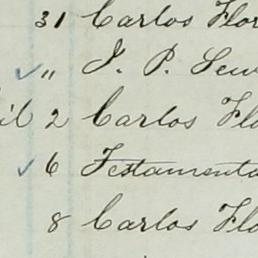 31 Carlos Flor
✓ " J. P. Lew
il 2 Carlos Flo
✓ 6 Testamenta
8 Carlos Flo